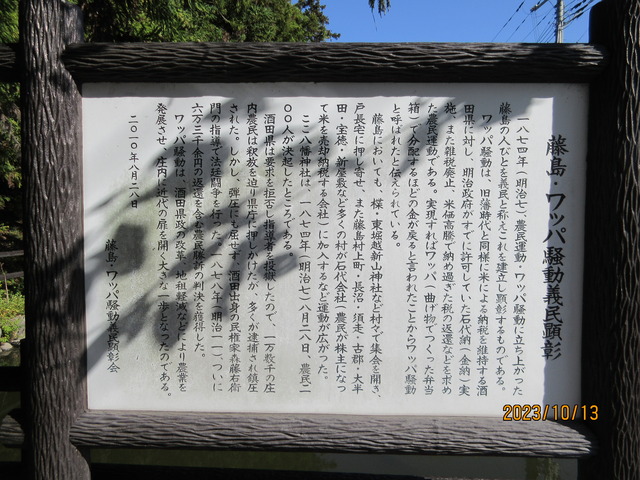 藤島・ワッパ騒動義民顕彰
一八七四年(明治七)農民運動・ワッパ騒動に立ち上がった
藤島の人びとを義民と称えこれを建立し顕彰するものである。
ワッパ騒動は、旧藩時代と同様に米による納税を維持する酒
田県に対し、明治政府がすでに許可していた石代納(金納)実
施、また雑税廃止、米価高騰で納め過ぎた税の返還などを求め
た農民運動である。実現すればワッパ(曲げ物でつくった弁当
箱)で分配するほどの金が戻ると言われたことからワッパ騒動
と呼ばれたと伝えられている。
藤島においても、楪・東堀越新山神社など村々で集会を開き、
戸長宅に押し寄せ、また藤島村上町・長沼・須走・古郡・大半
田・宝徳・新屋敷など多くの村が石代会社(農民が株主になっ
て米を売却納税する会社)に加入するなど運動が広がった。
ここ八幡神社は、一八七四年(明治七)八月二八日、農民二
〇〇人が決起したところである。
酒田県は要求を拒否し指導者を投獄したので、一万数千の庄
内農民は釈放を迫り県庁に押しかけたが、多くが逮捕され鎮圧
された。しかし、弾圧にも屈せず、酒田出身の民権家森藤右衛
門の指導で法廷闘争を行った。一八七八年(明治一一)、ついに
六万三千余円の返還を含む農民勝訴の判決を獲得した。
ワッパ騒動は、酒田県政の改革、地租軽減などにより農業を
発展させ、庄内に近代の扉を開く大きな一歩となったのである。
二〇一〇年八月二八日
藤島・ワッパ騒動義民顕彰会
2023/10/13